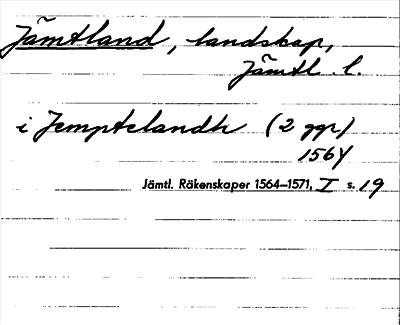 Jämtland, landskap,
Jämtl. l.
i Jemptelandh (2 ggr)
1564
Jämtl. Räkenskaper 1564–1571, I s. 19